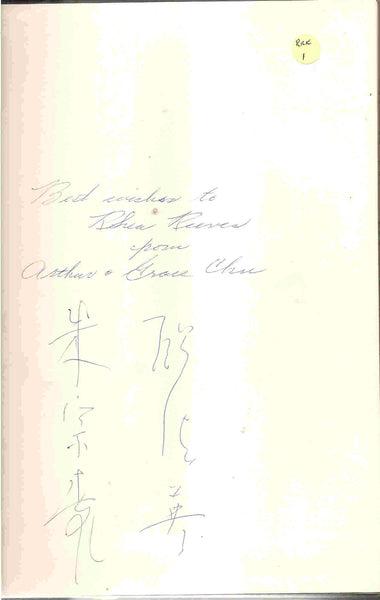 RRK
1
Best wishes to
Rhea Reeves
from
Arthur & Grace Chu
朱